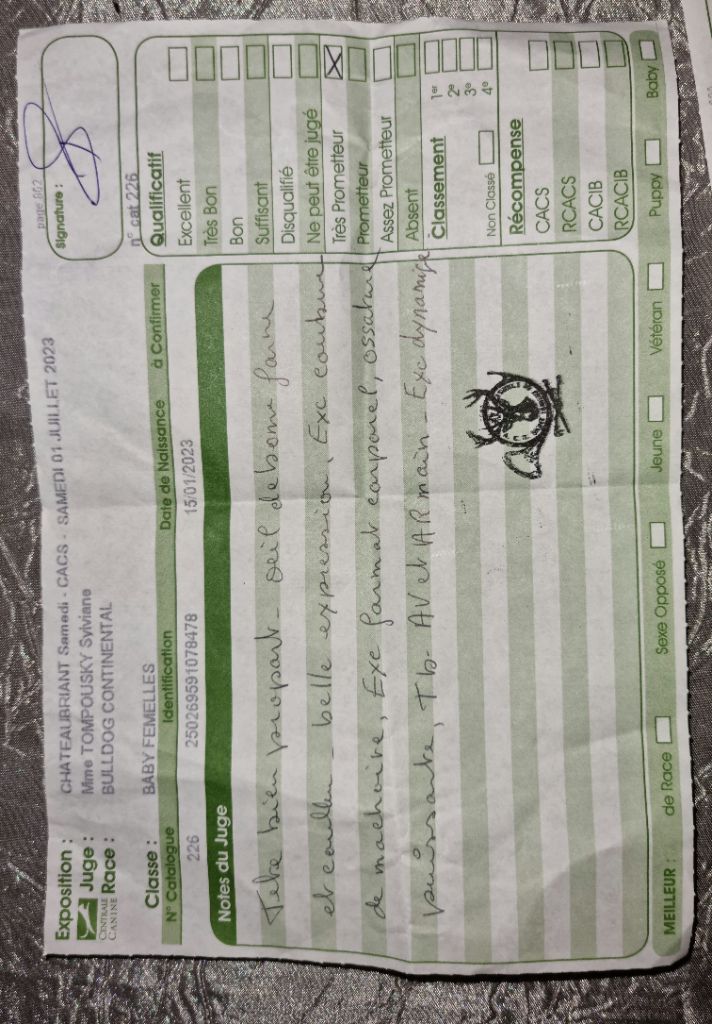 page 862
signature :
Exposition : CHATEAUBRIANT Samedi - CACS - SAMEDI 01 JUILLET 2023
Juge : Mme TOMPOUSKY Sylviane
CENTRALE CANINE
Race : BULLDOG CONTINENTAL
n° cat 226
Classe : BABY FEMELLES
N° Catalogue Identification Date de Naissance à Confirmer
226 250269591078478 15/01/2023
Notes du Juge
Tete bien propart - oeil de bonne forme
et couleur - belle expression, Exc courbure
de machoire, Exc format corporel, ossature
puissante, Tb AV et AR main - Exc dynamique
Qualificatif
Excellent
Très Bon
Bon
Suffisant
Disqualifié
Ne peut être jugé
Très Prometteur
Prometteur
Assez Prometteur
Absent
Classement
1er
2e
3e
4e
Non Classé
Récompense
CACS
RCACS
CACIB
RCACIB
MEILLEUR : de Race Sexe Opposé Jeune Vétéran Puppy Baby